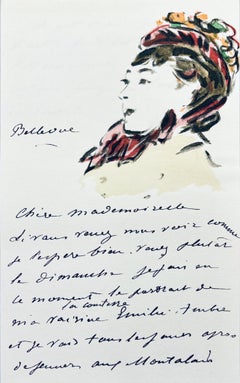 Bellevue
Chère mademoiselle
si vous venez nous voir comme
je l'espère bien. venez plutôt
le dimanche je fais en
ce moment le portrait de
la comtesse
ma voisine Emilie
et je vais tous les jours après
déjeuner aux Montalais